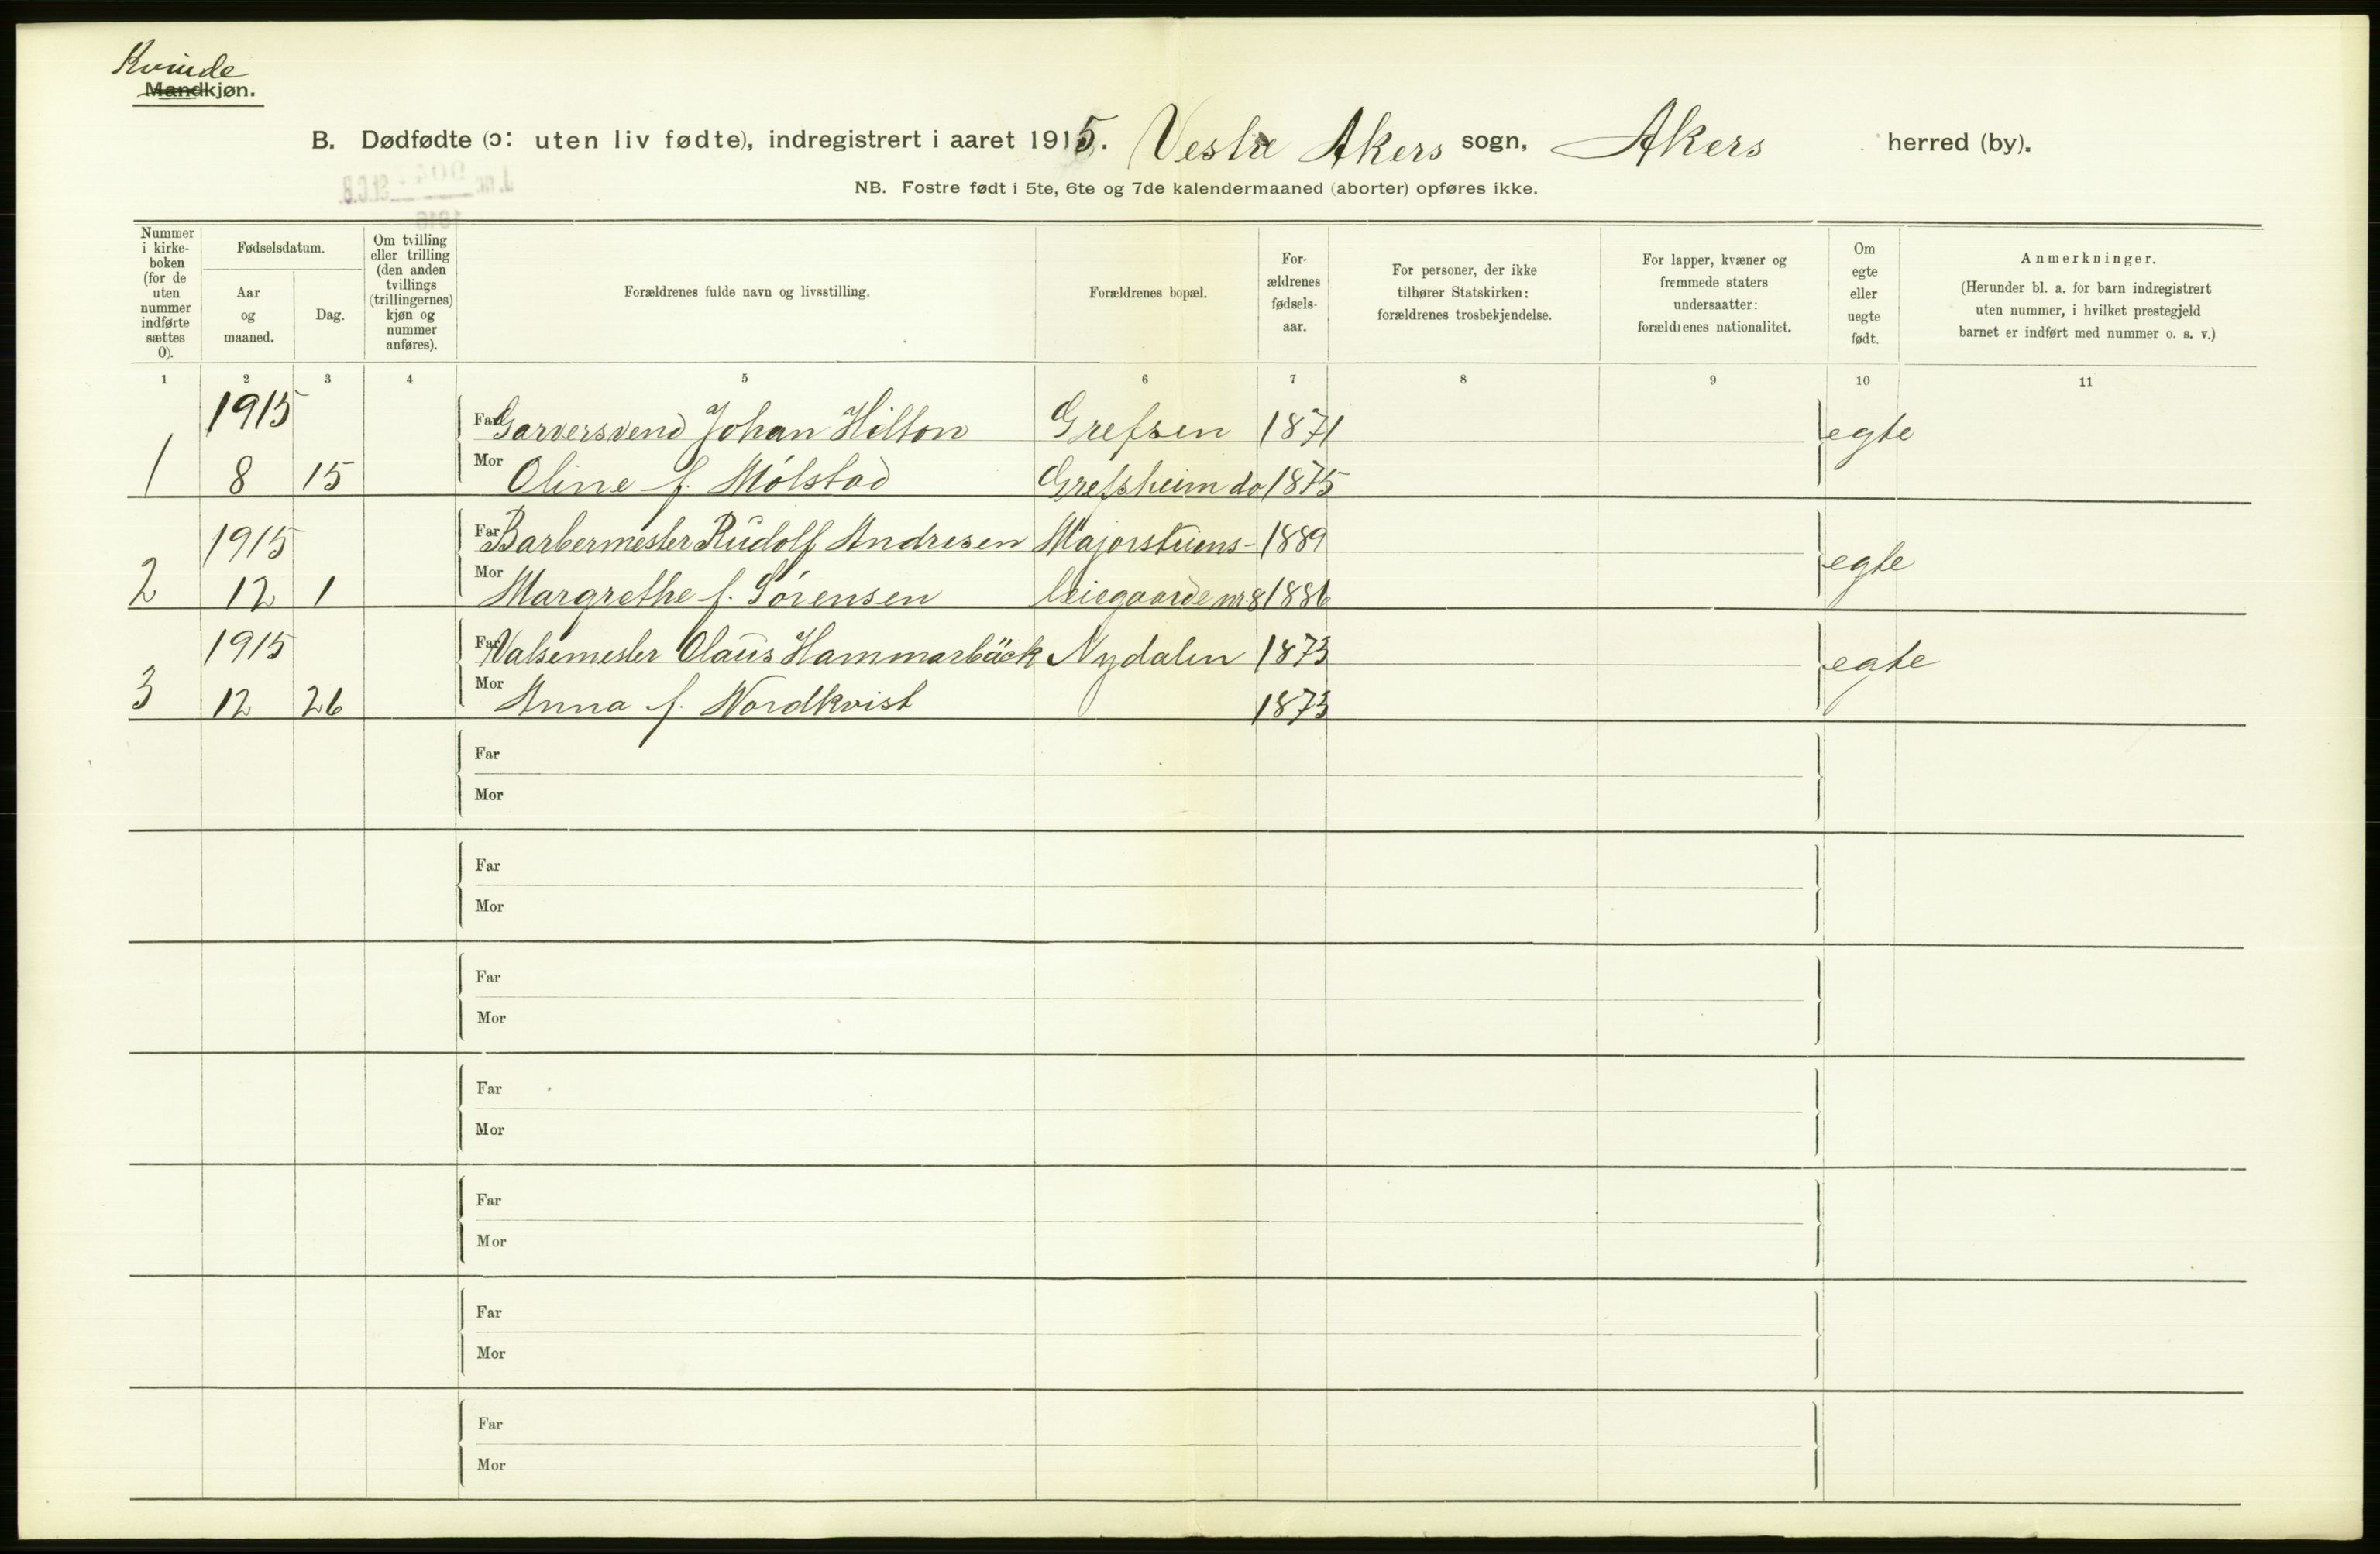 Kvinde
Mandkjøn.
B. Dødfødte (ɔ: uten liv fødte), indregistrert i aaret 1915. Vestre Akers sogn, Akers herred (by).
NB. Fostre født i 5te, 6te og 7de kalendermaaned (aborter) opføres ikke.
Nummer
i kirke-
boken
(for de
uten
nummer
indførte
sættes
0).
Fødselsdatum.
Aar
og
maaned.
Dag.
Om tvilling
eller trilling
(den anden
tvillings
(trillingernes)
kjøn og
nummer
anføres).
Forældrenes fulde navn og livsstilling.
Forældrenes bopæl.
For-
ældrenes
fødsels-
aar.
For personer, der ikke
tilhører Statskirken:
forældrenes trosbekjendelse.
For lapper, kvæner og
fremmede staters
undersaatter:
forældrenes nationalitet.
Om
egte
eller
uegte
født.
Anmerkninger.
(Herunder bl. a. for barn indregistrert
uten nummer, i hvilket prestegjeld
barnet er indført med nummer o. s. v.)
1 2 3 4 5 6 7 8 9 10 11
1915 Far Garversvend Johan Hilton Grefsen 1871 egte
1 8 15 Mor Oline f. Mølstad Grefsheim do 1875
1915 Far Barbermester Rudolf Andresen Majorstuens- 1889 egte
2 12 1 Mor Margrethe f. Sørensen leiegaarde nr 8 1886
1915 Far Valsemester Claus Hammarbäck Nydalen 1873 egte
3 12 26 Mor Anna f. Nordkvist 1873
Far
Mor
Far
Mor
Far
Mor
Far
Mor
Far
Mor
Far
Mor
Far
Mor